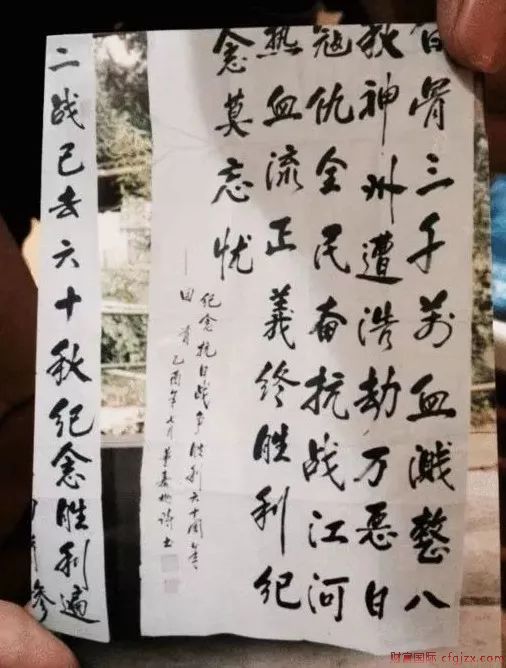 白骨三千萬血溅整八
秋神州遭浩劫万恶日
寇仇全民奋抗战江河
热血流正義终胜利纪
念莫忘忧
纪念抗日战争胜利六十周年
回首乙酉年七月
诗书
二战已去六十秋纪念胜利遍
财富国际 cfgjzx.com